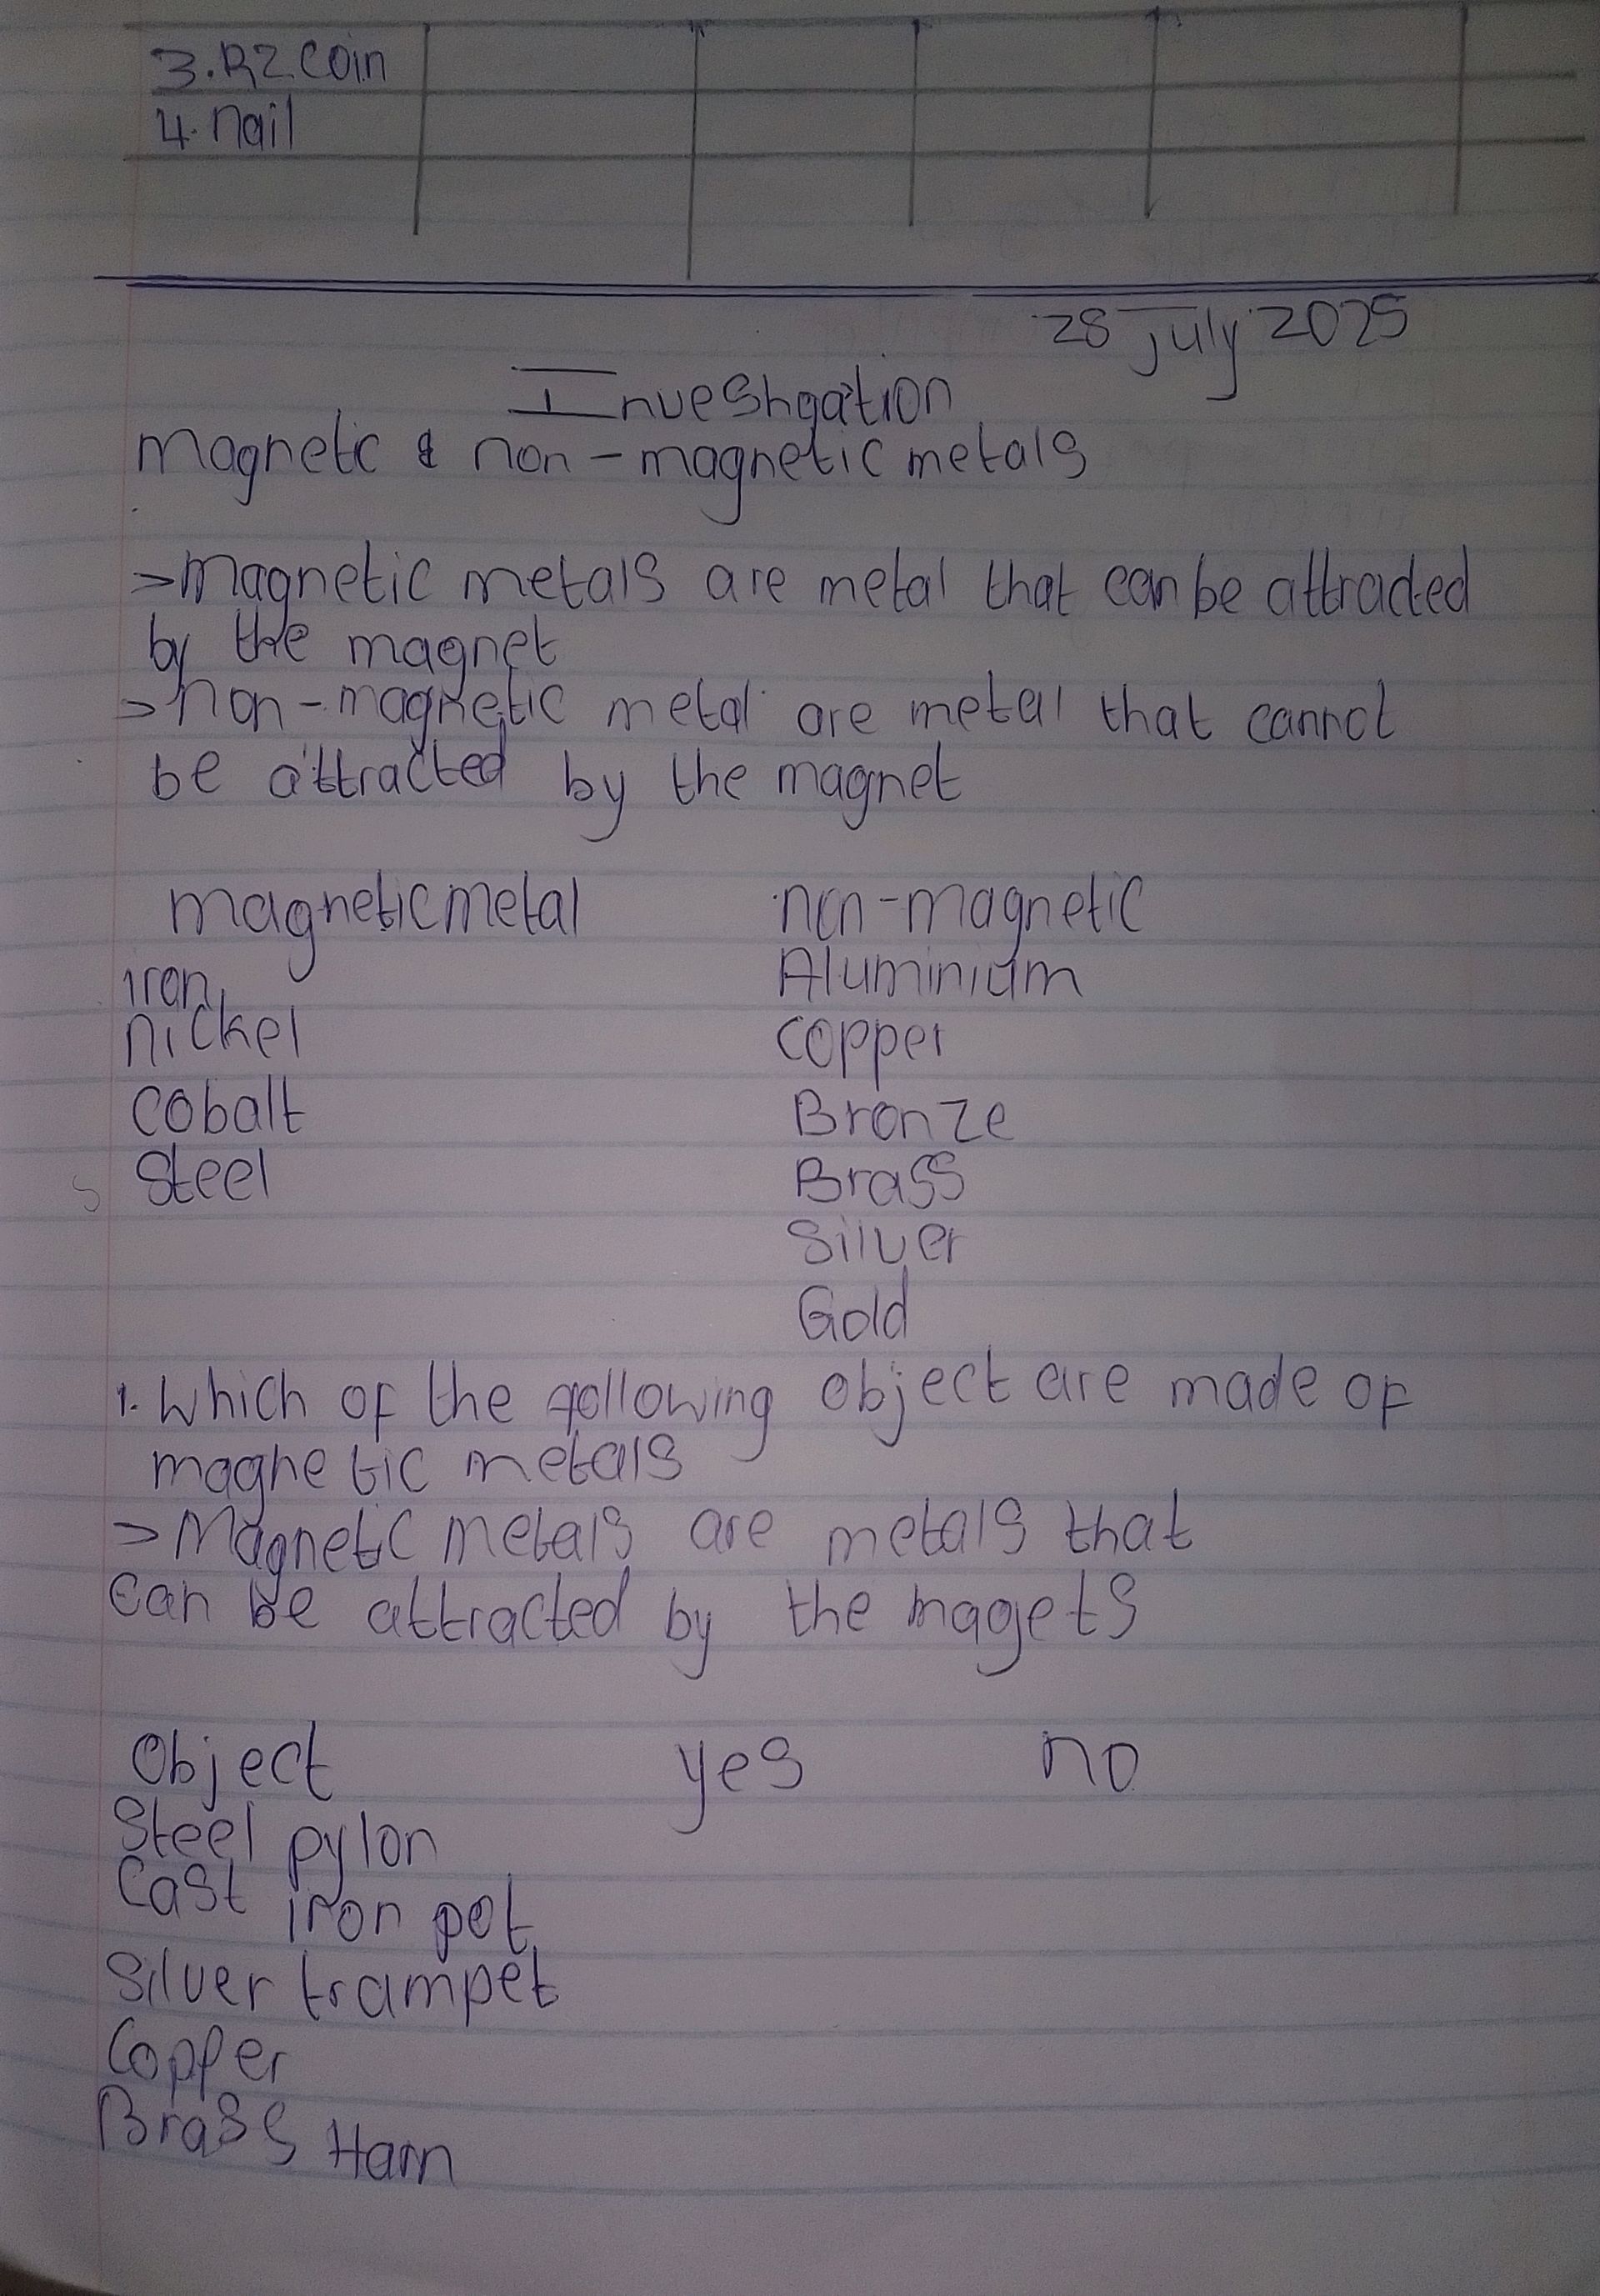 3. R2 coin
4. nail
28 July 2025
Investigation
magnetic & non-magnetic metals
>magnetic metals are metal that can be attracted
by the magnet
>non-magnetic metal are metal that cannot
be attracted by the magnet
magnetic metal non-magnetic
iron Aluminium
nickel copper
cobalt Bronze
Steel Brass
Silver
Gold
1. Which of the following object are made of
magnetic metals
>Magnetic metals are metals that
can be attracted by the magets
Object yes no
Steel pylon
Cast iron pot
Silver trampet
Copper
Brass Harn